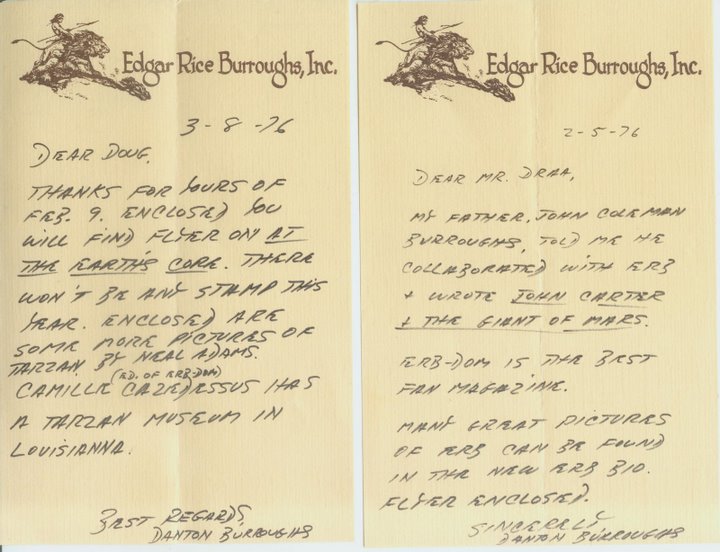 Edgar Rice Burroughs, Inc.
3-8-76
DEAR DOUG,
THANKS FOR YOURS OF
FEB. 9. ENCLOSED YOU
WILL FIND FLYER ON AT
THE EARTHS CORE. THERE
WON'T BE ANY STAMP THIS
YEAR. ENCLOSED ARE
SOME MORE PICTURES OF
TARZAN BY NEAL ADAMS.
(ED. OF ERB-DOM)
CAMILLE CAZEDESSUS HAS
A TARZAN MUSEUM IN
LOUISIANNA.
BEST REGARDS,
DANTON BURROUGHS
Edgar Rice Burroughs, Inc.
2-5-76
DEAR MR. DRAA,
MY FATHER, JOHN COLEMAN
BURROUGHS, TOLD ME HE
COLLABORATED WITH ERB
+ WROTE JOHN CARTER
+ THE GIANT OF MARS.
ERB-DOM IS THE BEST
FAN MAGAZINE.
MANY GREAT PICTURES
OF ERB CAN BE FOUND
IN THE NEW ERB BIO.
FLYER ENCLOSED.
SINCERELY
DANTON BURROUGHS